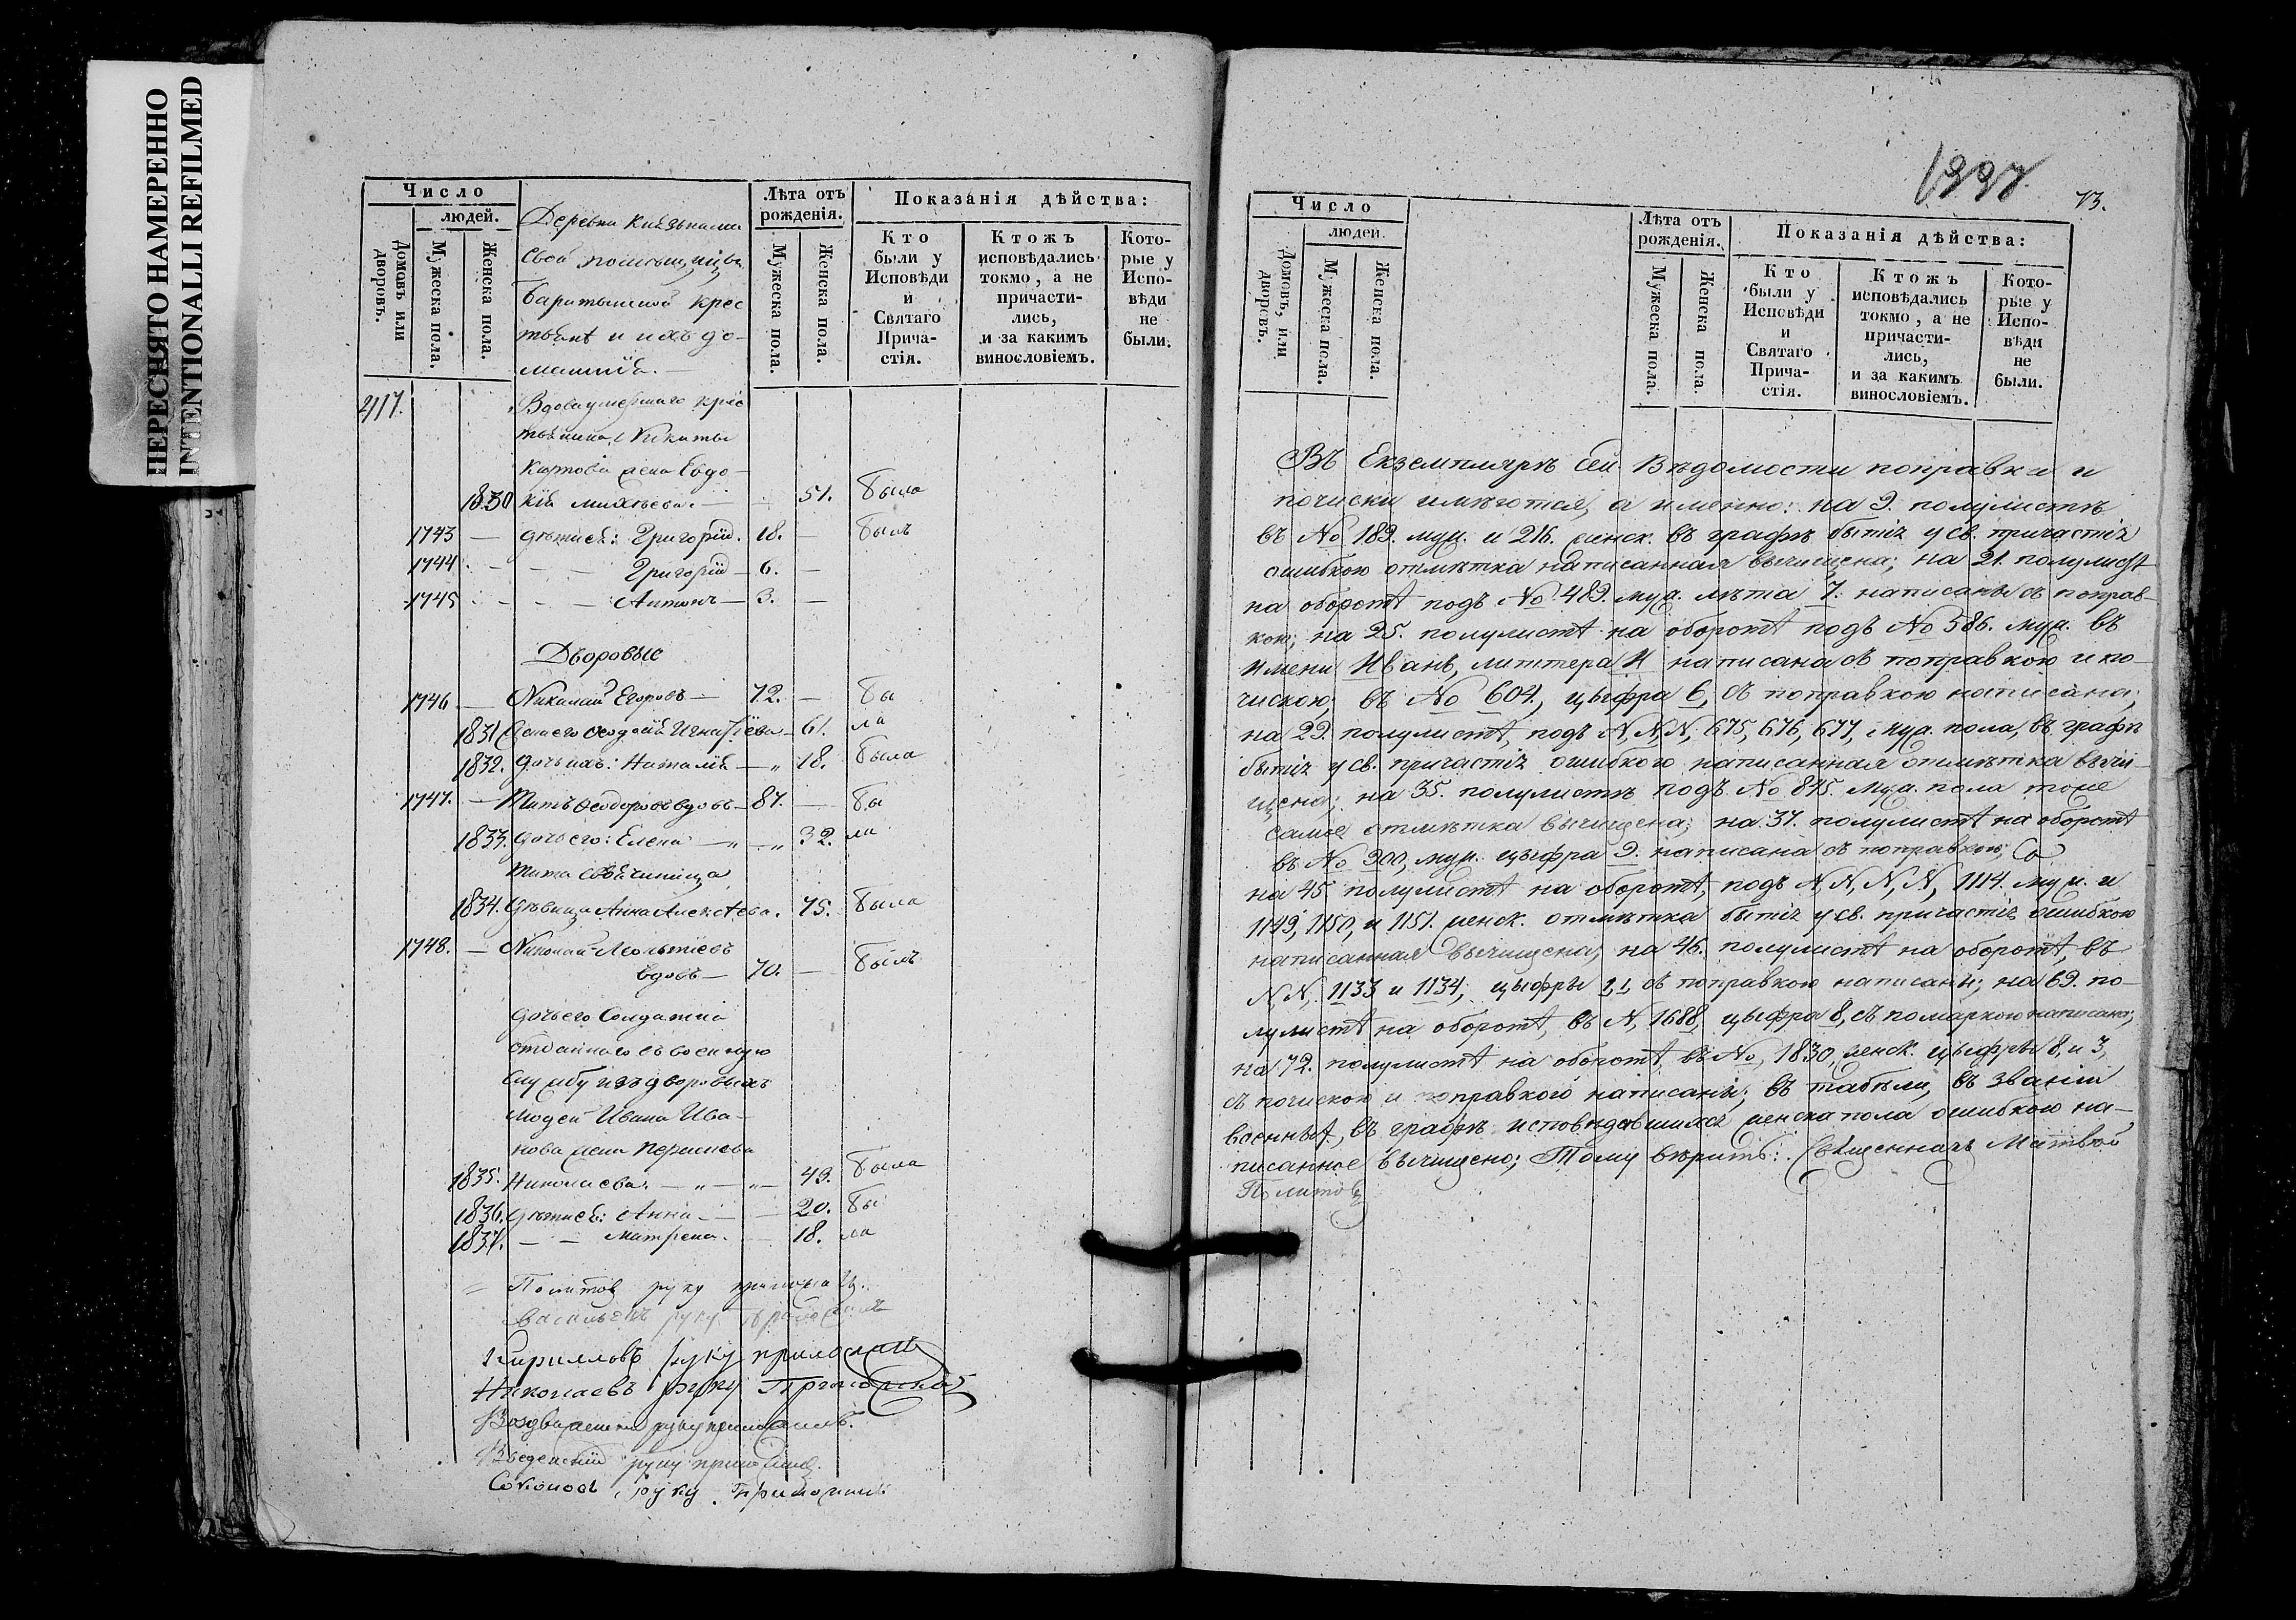 ПЕРЕСНЯТО НАМЕРЕННО
INTENTIONALLI REFILMED
Число
людей.
Домовъ или дворовъ.
Мужеска пола.
Женска пола.
Деревни
помещицы
крес
тьянѣ и ихъ до-
Лѣта отъ рожденія.
Мужеска пола.
Женска пола.
Показанія дѣйства:
Кто были у Исповѣди и Святаго Причастія.
Ктожъ исповѣдались токмо, а не причастились, и за какимъ винословіемъ.
Которые у Исповѣди не были.
417.
Вдова умершаго крес
тьянина Никиты
жена Евдо-
1830 кія 51. была
1743 — дѣти ея: Григорій. 18. — былъ
1744 — — Григорій — 6. —
1745 — — Антонъ — 3. —
Дворовые
1746 — Николай Егоровъ — 72. — бы
1831 Жена его Феодосія Игнатіева — 61. ла
1832. дочь ихъ: Наталія — „ 18. была
1747. — Титъ Феодоровъ вдовъ — 87. — бы
1833. дочь его: Елена — „ — „ 32. ла
Тита
1834. дѣвица Анна Алексѣева. 75. была
1748. — Николай
вдовъ — 70. — былъ
дочь его Солдатка
отданнаго въ военную
службу изъ дворовыхъ
людей Ивана Ива-
нова жена
1835. Николаева. — „ — „ — 49. была
1836. дѣти ея: Анна — — 20. бы
1837. — — Матрена. — 18. ла
Политов руку приложил.
Васильевъ руку приложилъ
Кирилловъ руку приложилъ
Николаевъ руку Приложилъ
руку приложилъ.
Введенскій руку приложилъ.
руку приложилъ.
1997.
73.
Число
людей.
Домовъ, или дворовъ.
Мужеска пола.
Женска пола.
Лѣта отъ рожденія.
Мужеска пола.
Женска пола.
Показанія дѣйства:
Кто были у Исповѣди и Святаго Причастія.
Ктожъ исповѣдались токмо, а не причастились, и за какимъ винословіемъ.
Которые у Исповѣди не были.
Въ Екземплярѣ сей Вѣдомости поправки и
почиски имѣются, а именно: на 9. полулистѣ
въ № 189. муж. и 216. женск. въ графѣ бытія у св. причастія
ошибкою отмѣтка написанная вычищена; на 21. полулистѣ
на оборотѣ подъ № 489. муж. лѣта 7. написаны съ поправ-
кою; на 25. полулистѣ на оборотѣ подъ № 586. муж. въ
имени Иванъ, литтера И написана съ поправкою и по-
чискою; въ № 604, цыфра 6, съ поправкою написана;
на 29. полулистѣ, подъ N,N,N, 675, 676, 677, муж. пола, въ графѣ
бытія у св. причастія ошибкою написанная отмѣтка вычи-
щена; на 35. полулистѣ подъ № 875. муж. пола тоже
самое отмѣтка вычищена; на 37. полулистѣ на оборотѣ
въ № 900, муж. цыфра 9. написана съ поправкою;
на 45. полулистѣ на оборотѣ, подъ N,N,N,N, 1114. муж. и
1149, 1150, и 1151. женск. отмѣтка бытія у св. причастія ошибкою
написанная вычищена; на 46. полулистѣ на оборотѣ, въ
N N, 1133 и 1134; цыфры 1,1, съ поправкою написаны; на 69. по-
лулистѣ на оборотѣ, въ N, 1688, цыфра 8, съ помаркою написана;
на 72. полулистѣ на оборотѣ, въ №, 1830, женск. цыфры 8, и 3,
съ почискою и поправкою написаны; въ табели, въ званіи
военныхъ, въ графѣ исповѣдавшихся женска пола ошибкою на-
писанное вычищено; Тому вѣрить: Священникъ Матвѣй
Политов